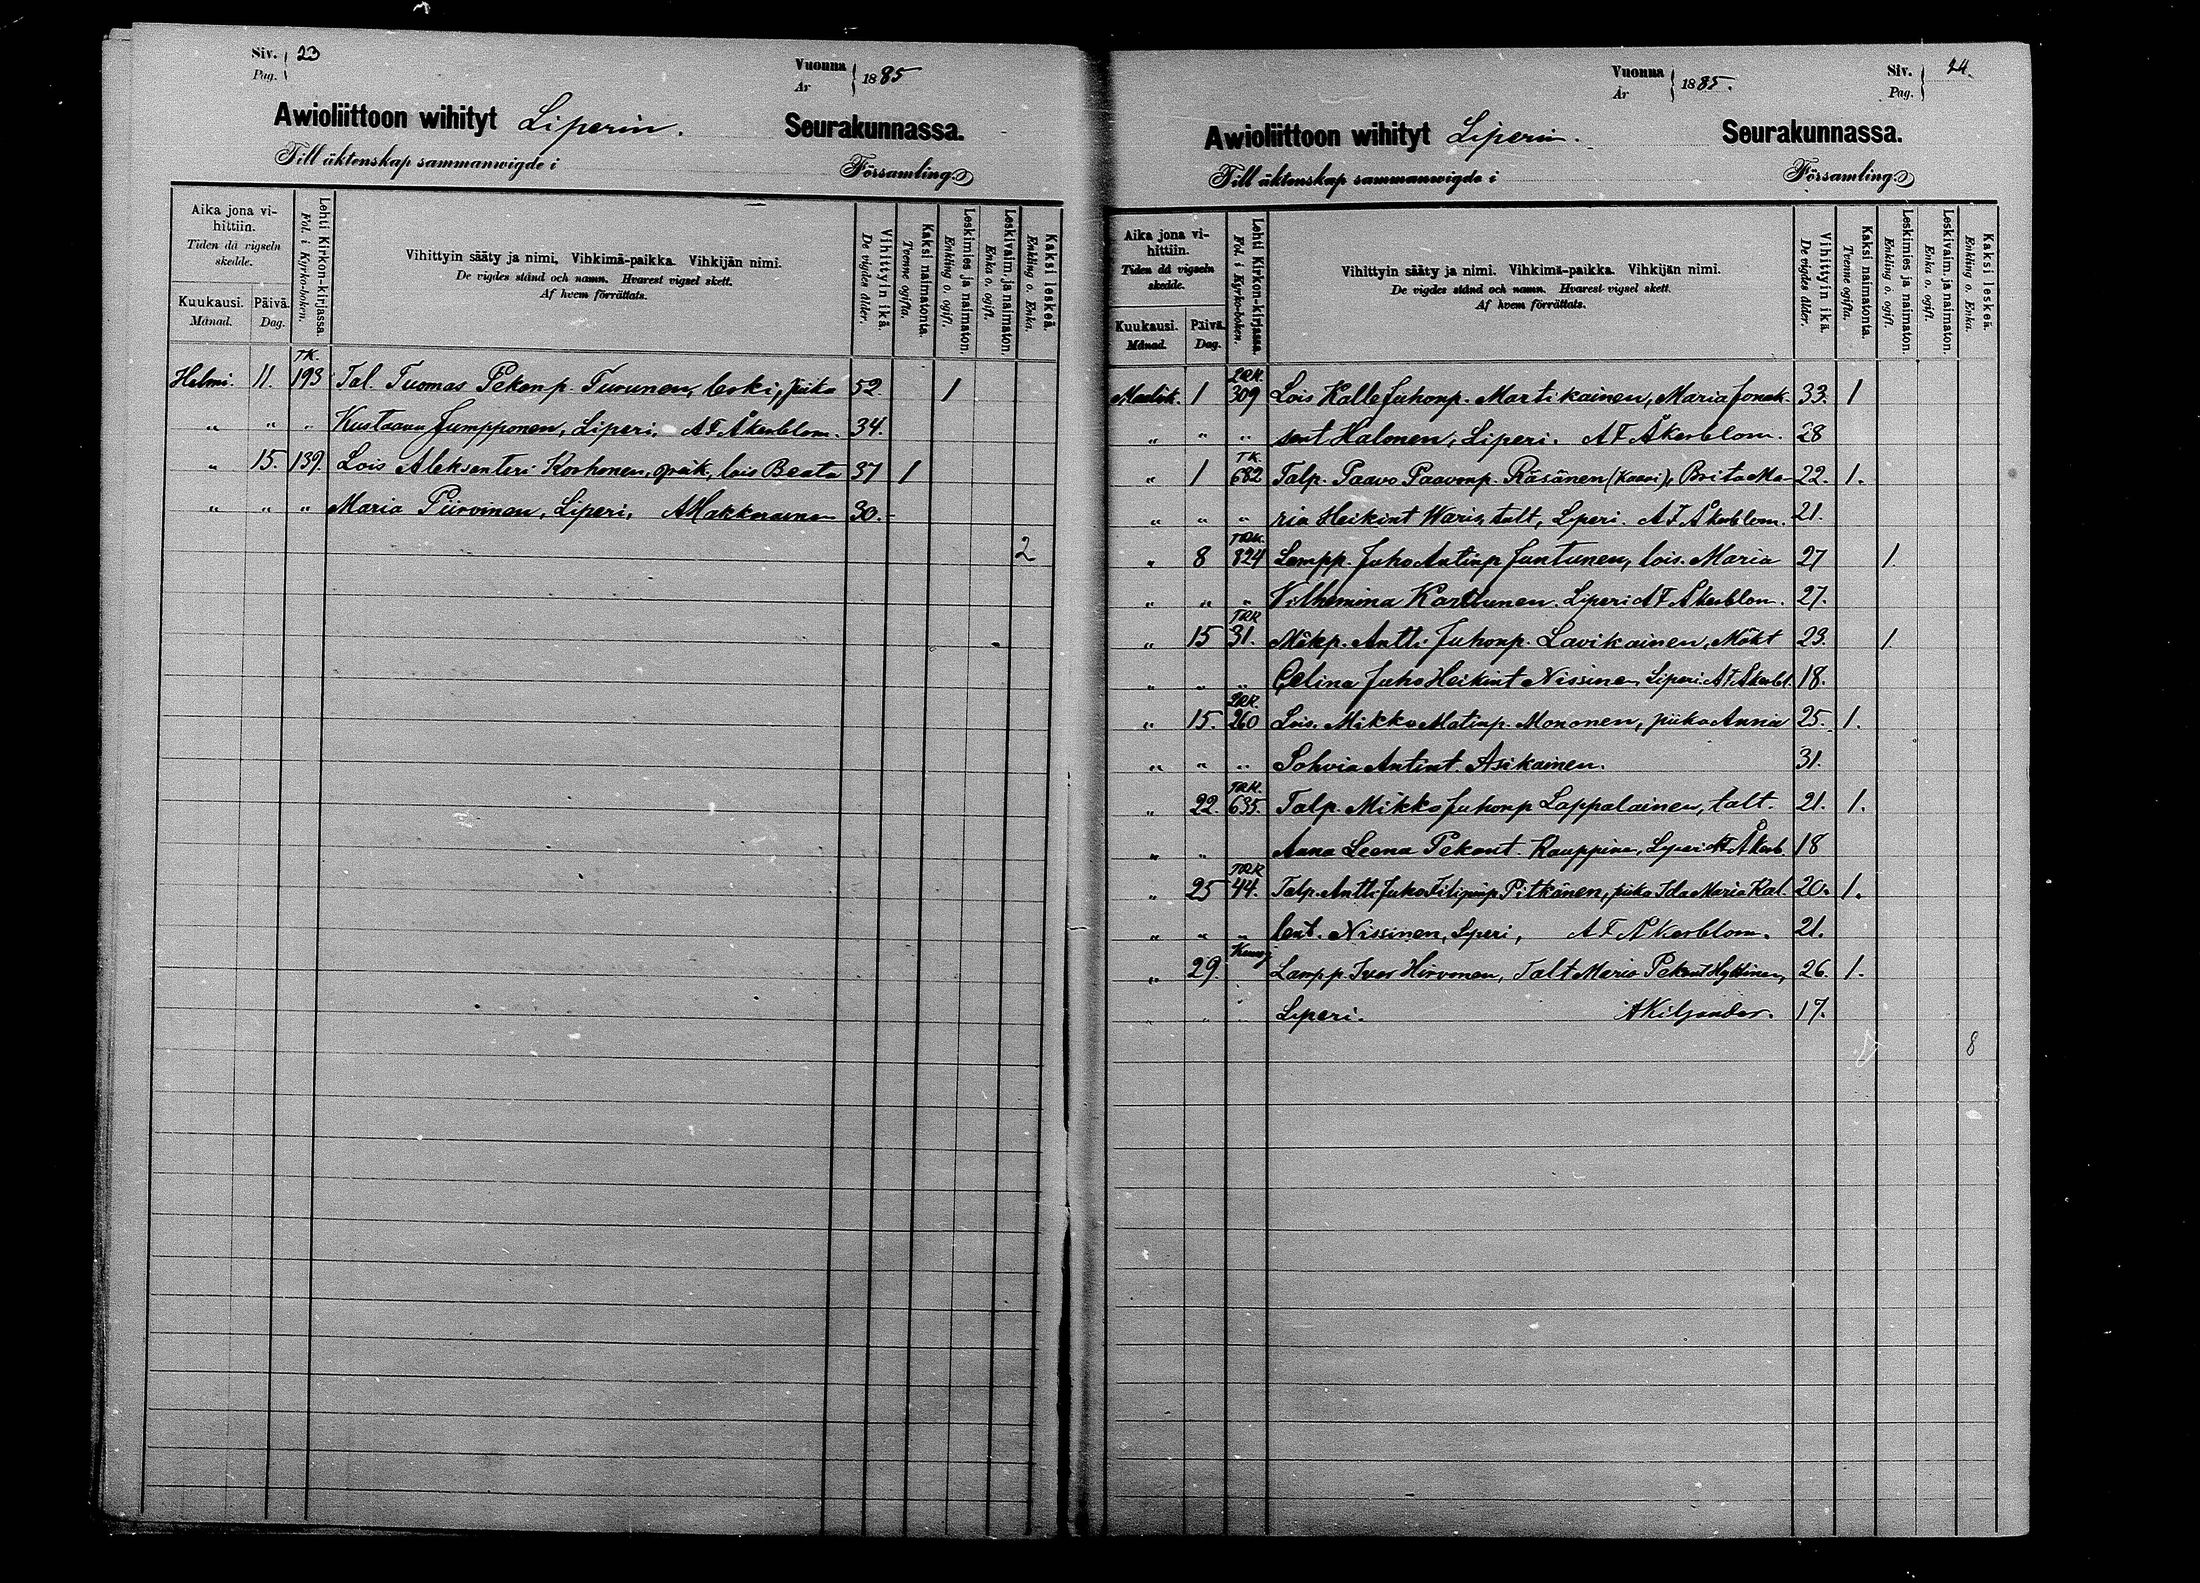 Siv. 23
Pag.
Vuonna 1885
År
Awioliittoon wihityt Liperin. Seurakunnassa.
Till äktenskap sammanwigde i Församling.
Aika jona vihittiin.
Tiden då vigseln skedde.
Kuukausi. Månad.
Päivä. Dag.
Lehti Kirkon-kirjassa.
Fol. i Kyrko-boken.
Vihittyin sääty ja nimi, Vihkimä-paikka. Vihkijän nimi.
De vigdes stånd och namn. Hvarest vigsel skett.
Af hvem förrättats.
Vihittyin ikä.
De vigdes ålder.
Kaksi naimatonta.
Tvenne ogifta.
Leskimies ja naimaton.
Enkling o. ogift.
Leskivaim. ja naimaton.
Enka o. ogift.
Kaksi leskeä.
Enkling o. Enka.
TK.
Helmi. 11. 193 Tal. Tuomas Pekanp. Turunen, leski, piika 52. 1
" " " Kustaava Jumpponen, Liperi. AF Åkerblom. 34.
" 15. 139. Lois Aleksanteri Korhonen, lois Beata 37 1
" " " Maria Piiroinen, Liperi, AMakkonen 30.
2
Vuonna 1885.
År
Siv. 24.
Pag.
Awioliittoon wihityt Liperin. Seurakunnassa.
Till äktenskap sammanwigde i Församling.
Aika jona vihittiin.
Tiden då vigseln skedde.
Kuukausi. Månad.
Päivä. Dag.
Lehti Kirkon-kirjassa.
Fol. i Kyrko-boken.
Vihittyin sääty ja nimi. Vihkimä-paikka. Vihkijän nimi.
De vigdes stånd och namn. Hvarest vigsel skett.
Af hvem förrättats.
Vihittyin ikä.
De vigdes ålder.
Kaksi naimatonta.
Tvenne ogifta.
Leskimies ja naimaton.
Enkling o. ogift.
Leskivaim. ja naimaton.
Enka o. ogift.
Kaksi leskeä.
Enkling o. Enka.
LRK.
Maalisk. 1 309 Lois Kalle Juhonp. Martikainen, Maria Joonak 33. 1
" " " sent Halonen, Liperi. AF Åkerblom. 28
TK.
" 1 682 Talp. Paavo Paavonp. Räsänen (Kaavi), Brita Ma- 22. 1.
" " " ria Heikint Waris, talt, Liperi. AF Åkerblom. 21.
TRK.
" 8 824 Lampp. Juho Antinp Juntunen, lois. Maria 27 1.
" " " Vilhemina Karttunen. Liperi AF Åkerblom. 27.
TRK
" 15 31. Mökp. Antti Juhonp. Lavikainen, Mökt 23. 1.
" " " Celina Juho Heikint Nissinen, Liperi. AF Åkerbl. 18.
LRK.
" 15. 260 Lois. Mikko Matinp. Mononen, piika Anna 25. 1.
" " " Sohvia Antint. Asikainen. 31.
TRK.
" 22. 635. Talp. Mikko Juhonp Lappalainen, talt. 21. 1.
" " Anna Leena Pekant. Kauppine, Liperi AF Åkerb. 18
TRK
" 25 44. Talp. Antti Juho Filipinp Pitkänen, piika Ida Maria Kal 20. 1.
" " " lent. Nissinen, Liperi, AF Åkerblom. 21.
" 29. Lampp. Ivar Hirvonen, Talt Maria Pekant Hyttinen, 26. 1.
" " " Liperi. AKiljander. 17.
8